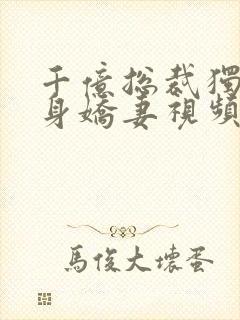 千億総裁獨
身嬌妻視頻
馬俊大壞蛋